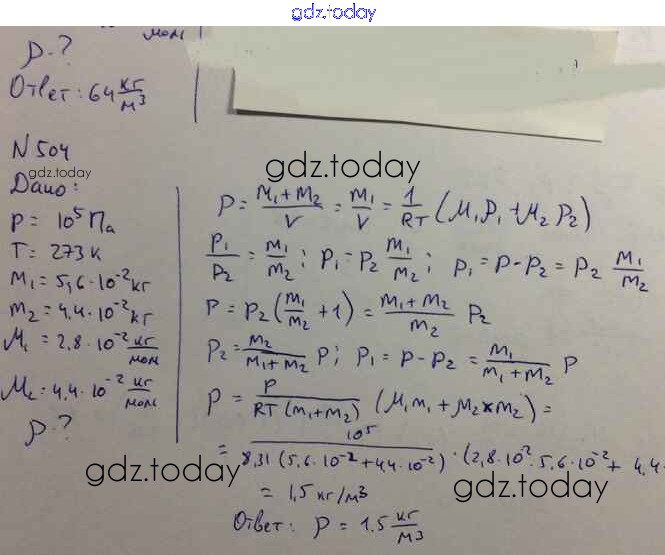 gdz.today
моль
ρ-?
Ответ: 64 кг/м³
N 504
gdz.today
Дано:
P = 10⁵ Па
T = 273 K
m₁ = 5,6·10⁻² кг
m₂ = 4,4·10⁻² кг
M₁ = 2,8·10⁻² кг/моль
M₂ = 4,4·10⁻² кг/моль
ρ-?
gdz.today
ρ = (m₁+m₂)/V = m₁/V = 1/RT (M₁P₁ + M₂P₂)
P₁/P₂ = m₁/m₂; P₁ = P₂ m₁/m₂; P₁ = P-P₂ = P₂ m₁/m₂
P = P₂(m₁/m₂ + 1) = (m₁+m₂)/m₂ P₂
P₂ = m₂/(m₁+m₂) P; P₁ = P-P₂ = m₁/(m₁+m₂) P
ρ = P/(RT(m₁+m₂)) (M₁m₁ + M₂×m₂) =
= 10⁵/(8,31(5,6·10⁻²+4,4·10⁻²)) · (2,8·10²·5,6·10⁻² + 4,4
= 1,5 кг/м³
Ответ: ρ = 1,5 кг/м³
gdz.today
gdz.today